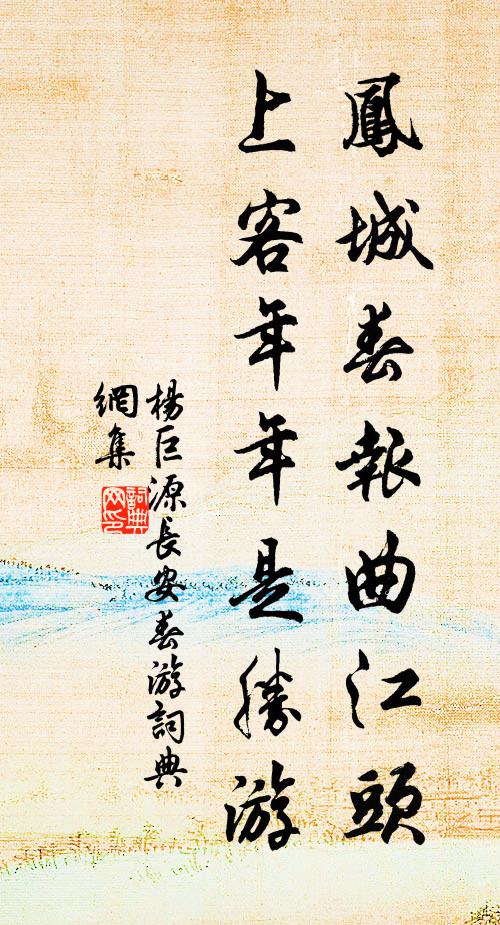 鳳城春報曲江頭
上客年年是勝游
楊巨源長安春游詞典
網集
詞典
网印